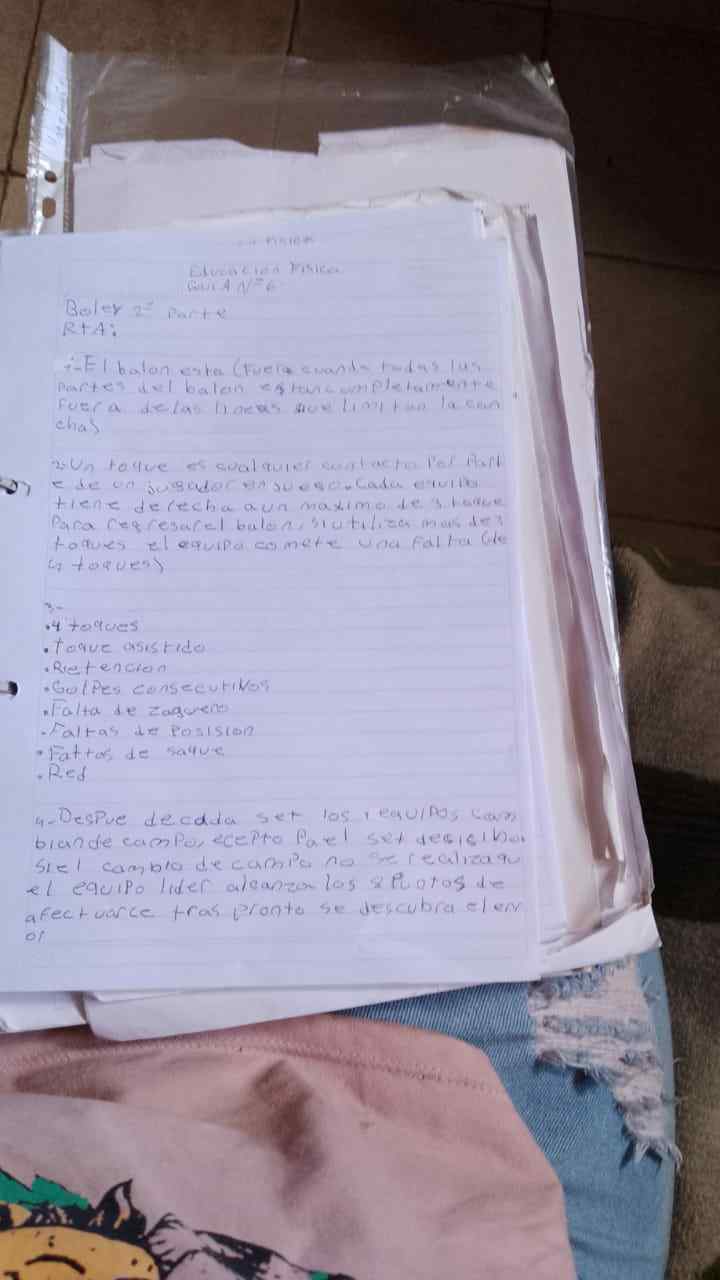 Educacion Fisica
GUIA Nº 6
Boley 2º Parte
RTA:
1-El balon esta (Fuera cuando todas las
partes del balon estan completamente
Fuera de las lineas que limitan la can
cha)
2-Un toque es cualquier contacto Por Part
e de un jugador en juego. Cada equipo
tiene derecha a un maximo de 3 toque
Para regresar el balon, si utiliza mas de 3
toques el equipo comete una Falta (de
4 toques)
3-
•4 toques
•Toque asistido
•Retencion
•Golpes consecutivos
•Falta de zaguero
•Faltas de Posision
•Faltas de saque
•Red
4-Despue decada set los equipos cam
biande campo, ecepto Pa el set desisibo.
Siel cambio de campo no se realiza qu
el equipo lider alcanza los 8 Puntos de
afectuarce tras pronto se descubra el err
or